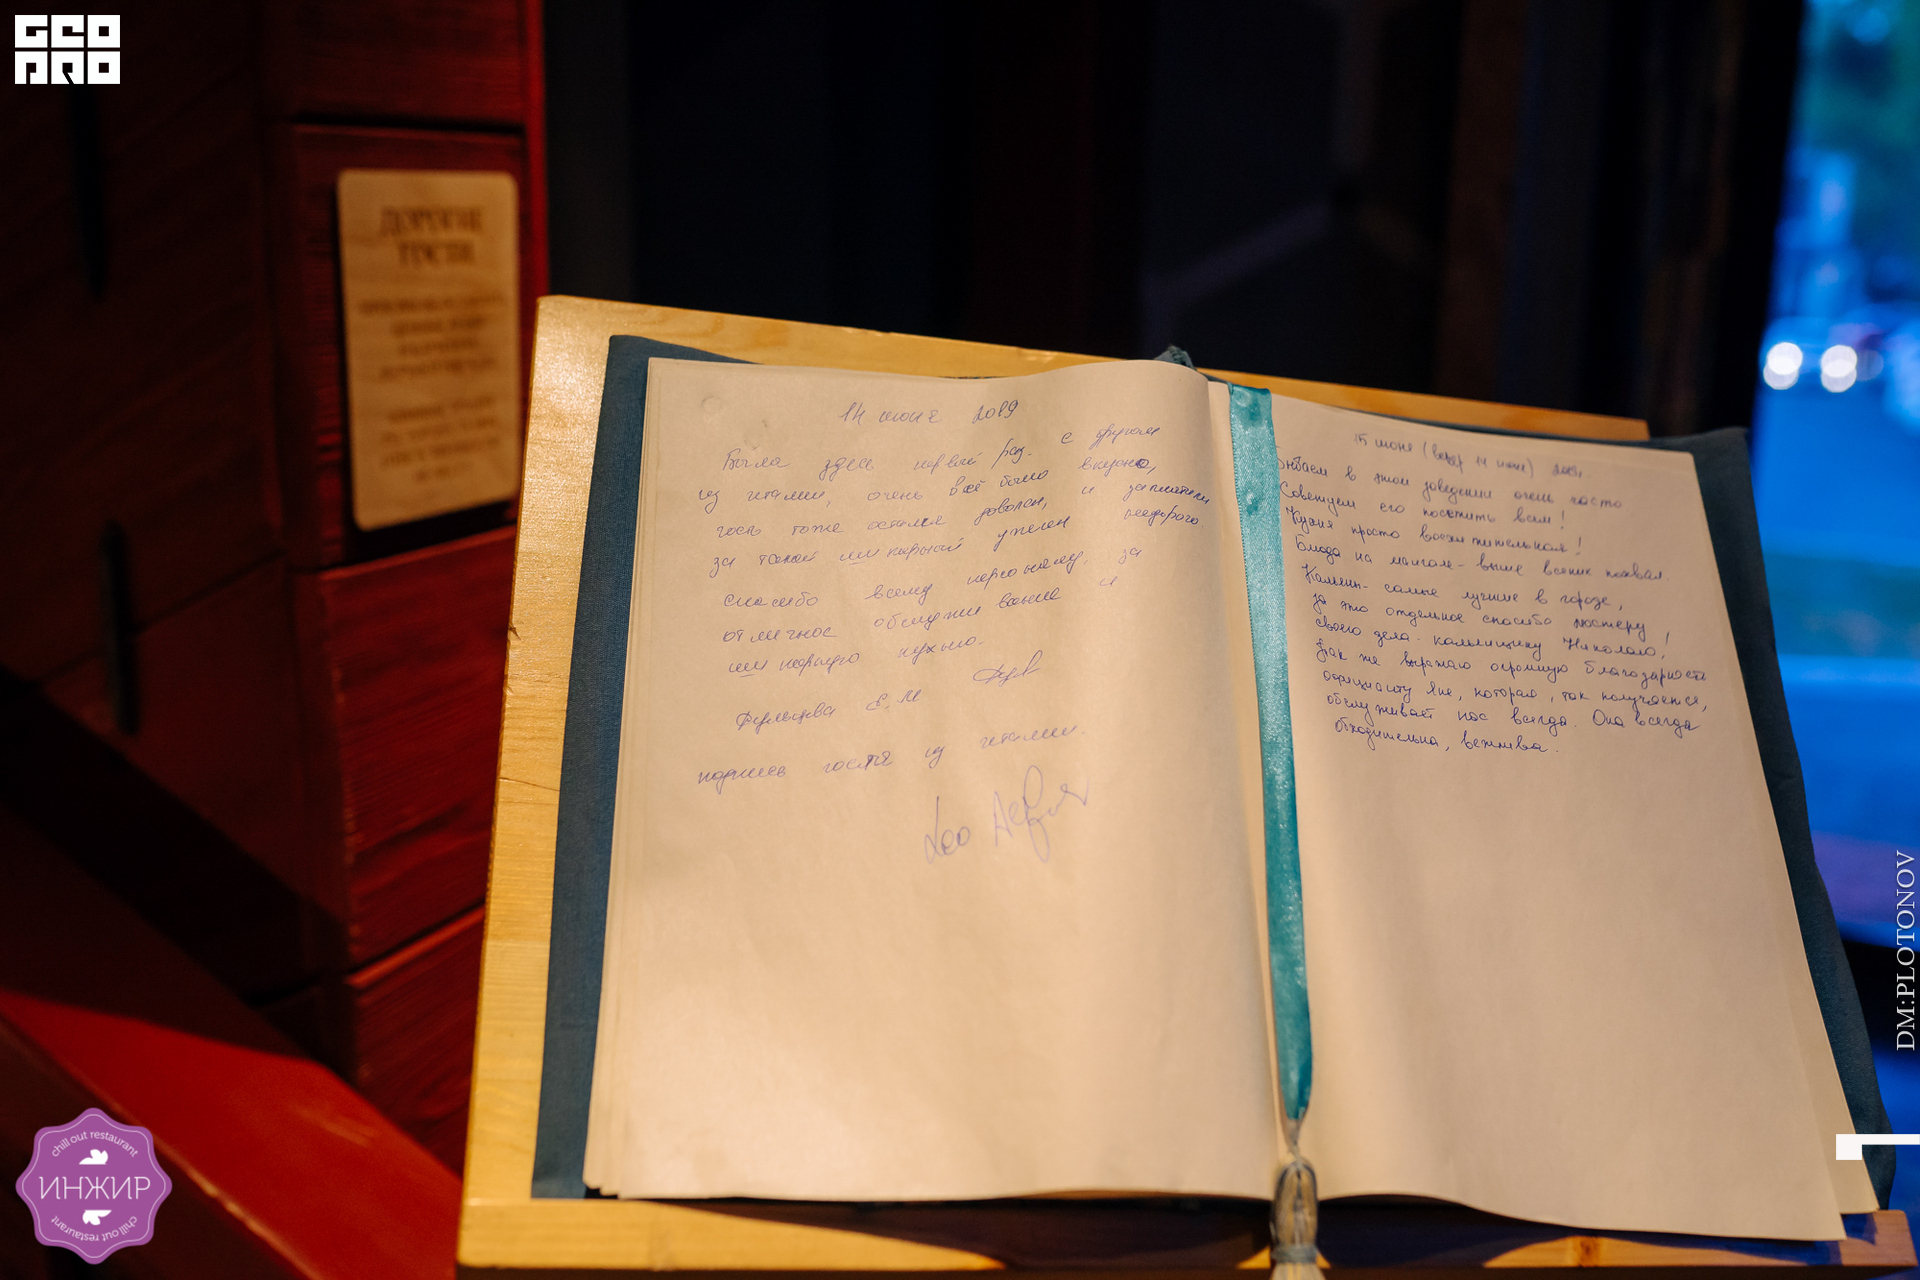 GEO
PRO
ДОРОГИЕ
ГОСТИ
14 июня 2019
Была здесь первый раз. с другом
из италии, очень всё было вкусно,
гость тоже остался доволен, и заплатили
за такой шикарный ужин недорого.
спасибо всему персоналу, за
отличное обслуживание и
шикарную кухню.
Е.М
подпись гостя из италии.
Leo
15 июня (вечер 14 июня)
Бываем в этом заведении очень часто
Советуем его посетить вам!
Кухня просто восхитительная!
Блюда на мангале - выше всяких похвал.
Кальяны - самые лучшие в городе,
За это отдельное спасибо мастеру
своего дела - кальянщику Николаю!
Так же выражаю огромную благодарность
официанту Яне, которая, так получается,
обслуживает нас всегда. Она всегда
обходительна, вежлива.
DM:PLOTONOV
chill out restaurant
ИНЖИР
chill out restaurant